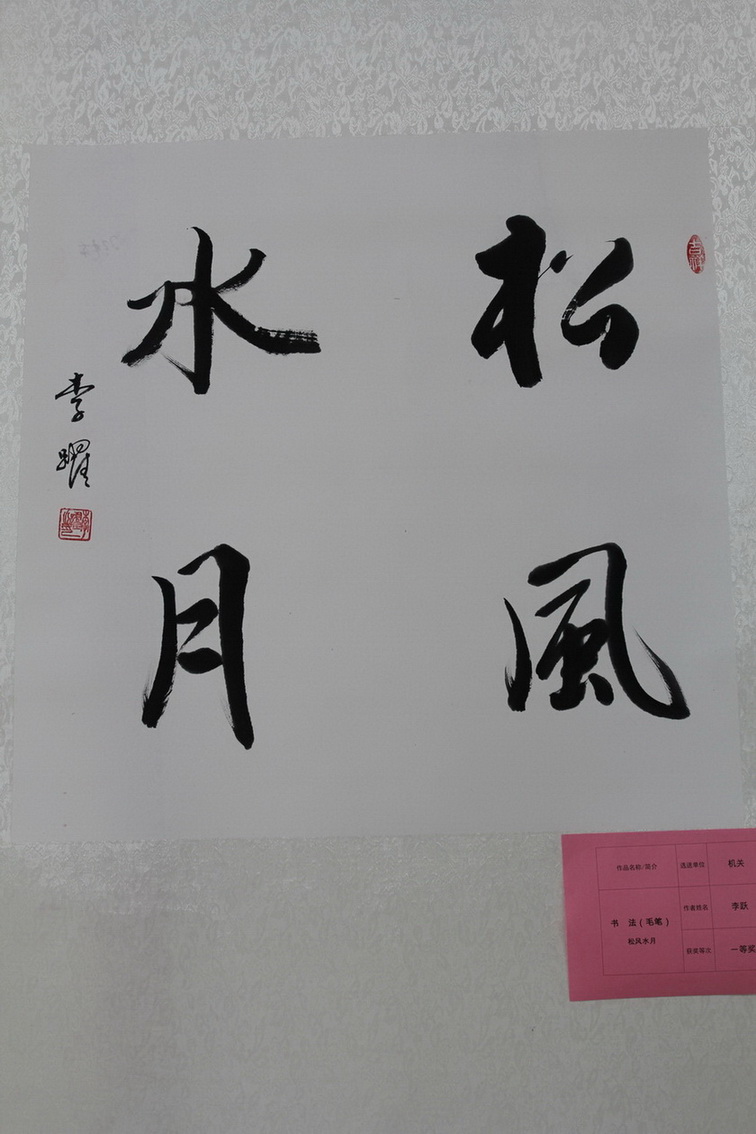 松風
水月
李躍
吉祥
作品名称/简介
选送单位
机关
书 法（毛笔）
松风水月
作者姓名
李跃
获奖等次
一等奖